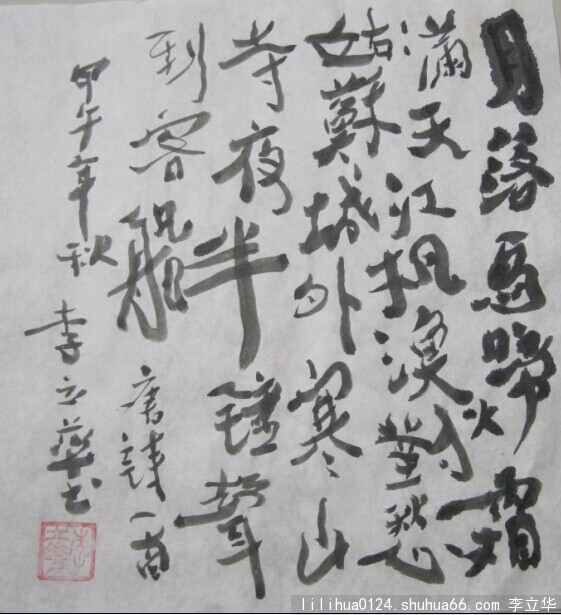 月落烏啼霜
滿天江枫漁火對愁
姑蘇城外寒山
寺夜半鐘聲
到客船 唐詩一首
甲午年秋 李立華书
lilihua0124.shuhua66.com 李立华